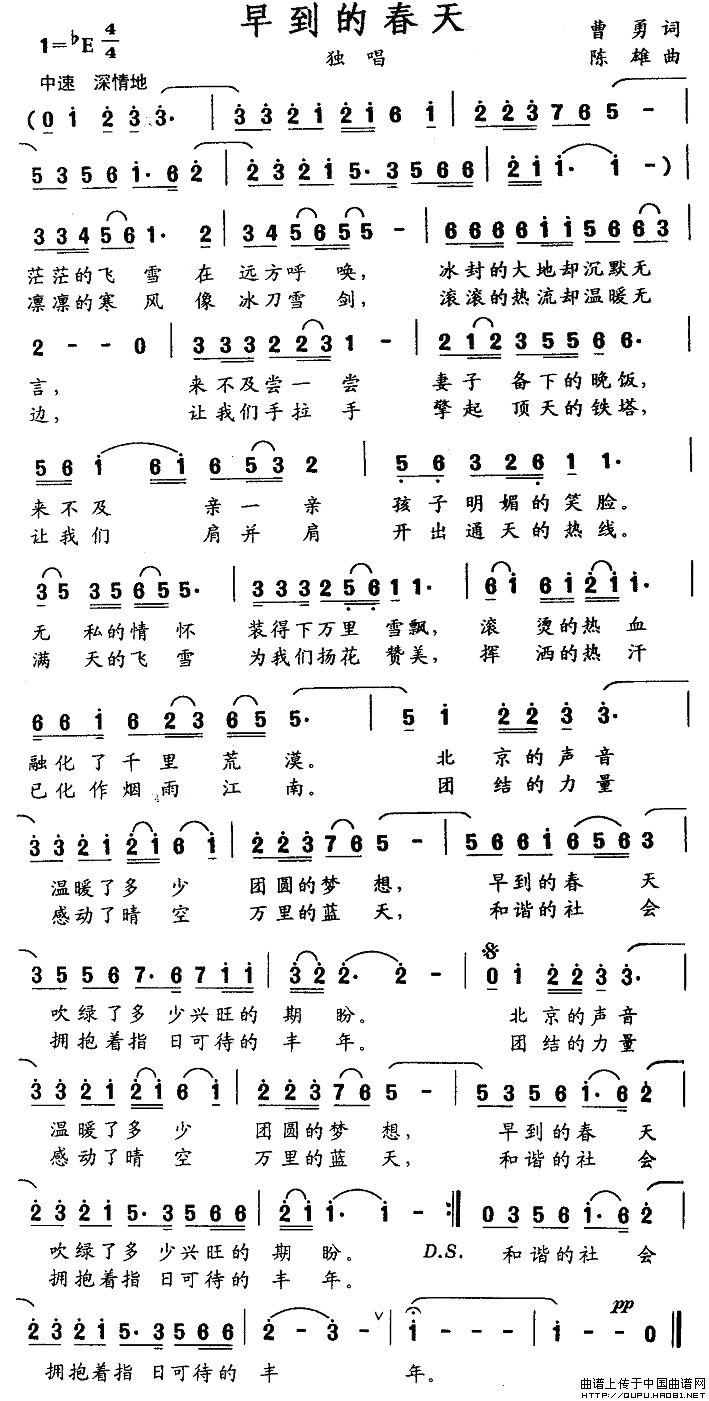 早到的春天
1=♭E 4/4
独唱
曹勇词
陈雄曲
中速 深情地
(0 1 2 3 3· | 3 3 2 1 2 1 6 1 | 2 2 3 7 6 5 - |
5 3 5 6 1· 6 2 | 2 3 2 1 5· 3 5 6 6 | 2 1 1· 1 - ) |
3 3 4 5 6 1· 2 | 3 4 5 6 5 5 - | 6 6 6 6 1 1 5 6 6 3 |
茫茫的飞 雪 在 远方呼 唤， 冰封的大地却沉默无
凛凛的寒 风 像 冰刀雪 剑， 滚滚的热流却温暖无
2 - - 0 | 3 3 3 2 2 3 1 - | 2 1 2 3 5 5 6 6· |
言， 来不及尝一 尝 妻子 备下的晚饭，
边， 让我们手拉 手 擎起 顶天的铁塔，
5 6 1 6 1 6 5 3 2 | 5 6 3 2 6 1 1· |
来不及 亲一 亲 孩子明媚的笑脸。
让我们 肩并 肩 开出通天的热线。
3 5 3 5 6 5 5· | 3 3 3 2 5 6 1 1· | 6 1 6 1 2 1 1· |
无 私的情 怀 装得下万里 雪飘， 滚 烫的热 血
满 天的飞 雪 为我们扬花 赞美， 挥 洒的热 汗
6 6 1 6 2 3 6 5 5· | 5 1 2 2 3 3· |
融化了千里 荒 漠。 北 京的声音
已化作烟雨 江 南。 团 结的力量
3 3 2 1 2 1 6 1 | 2 2 3 7 6 5 - | 5 6 6 1 6 5 6 3 |
温暖了多 少 团圆的梦 想， 早到的春 天
感动了晴 空 万里的蓝 天， 和谐的社 会
3 5 5 6 7· 6 7 1 1 | 3 2 2· 2 - | 0 1 2 2 3 3· |
吹绿了多 少兴旺的 期 盼。 北京的声音
拥抱着指 日可待的 丰 年。 团结的力量
3 3 2 1 2 1 6 1 | 2 2 3 7 6 5 - | 5 3 5 6 1· 6 2 |
温暖了多 少 团圆的梦 想， 早到的春 天
感动了晴 空 万里的蓝 天， 和谐的社 会
2 3 2 1 5· 3 5 6 6 | 2 1 1· 1 - :‖ 0 3 5 6 1· 6 2 |
吹绿了多 少兴旺的 期 盼。 D.S. 和谐的社 会
拥抱着指 日可待的 丰 年。
pp
2 3 2 1 5· 3 5 6 6 | 2 - 3 - ∨ | 1 - - - | 1 - - 0 ‖
拥抱着指 日可待的 丰 年。
曲谱上传于中国曲谱网
www.QUPU.HAO81.NET